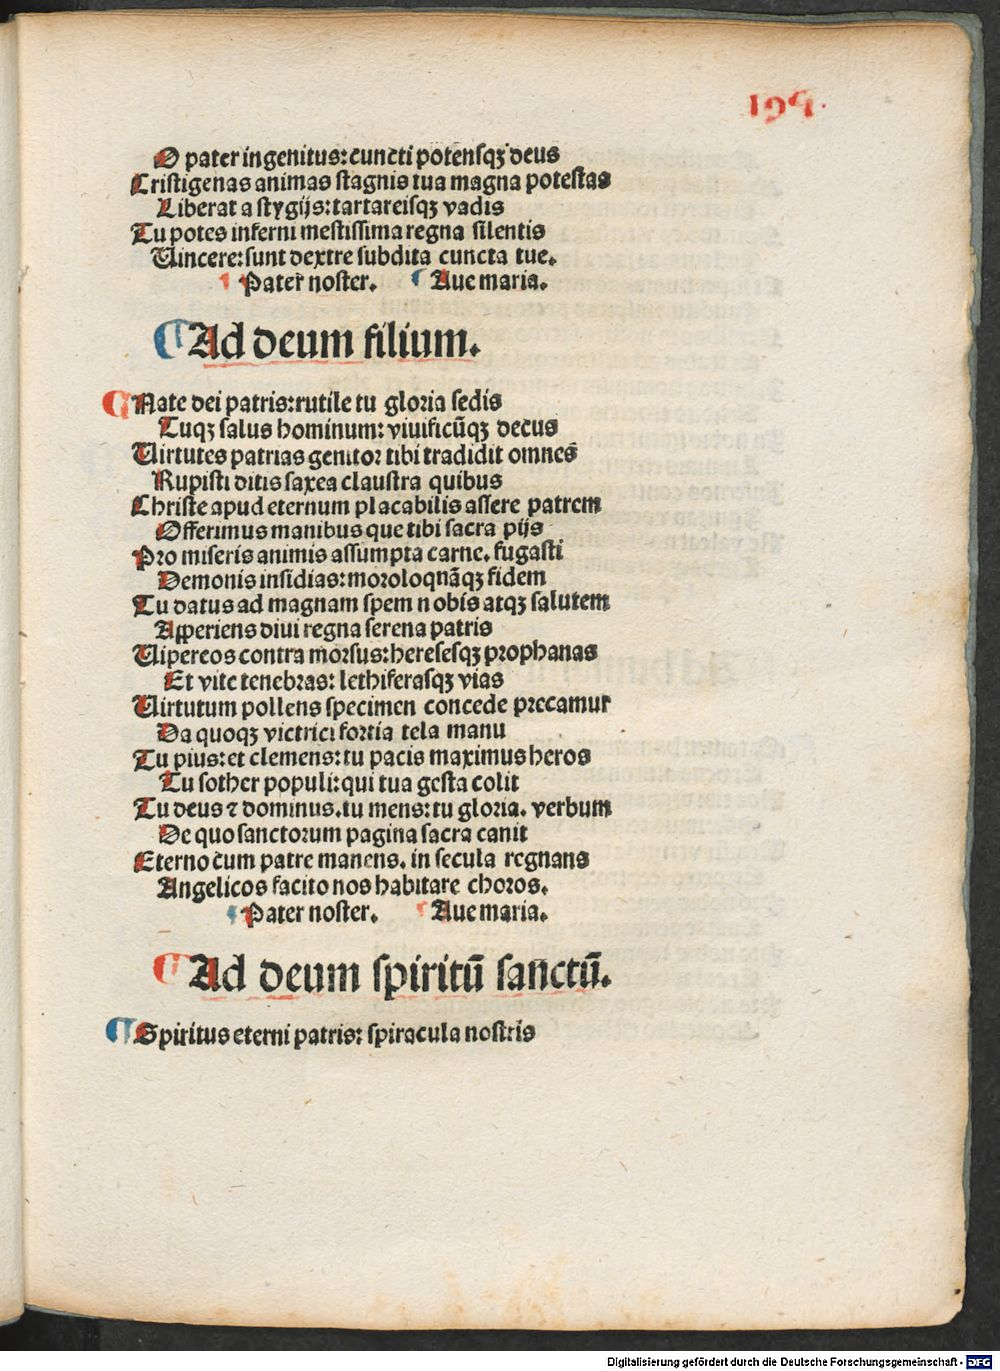 199.
O pater ingenitus: cuncti potensqꝫ deus
Cristigenas animas stagnis tua magna potestas
Liberat a stygijs: tartareisqꝫ vadis
Tu potes inferni mestissima regna silentis
Uincere: sunt dextre subdita cuncta tue.
¶ Pater noster. ¶ Aue maria.
¶ Ad deum filium.
¶ Nate dei patris: rutile tu gloria sedis
Tuqꝫ salus hominum: viuificūqꝫ decus
Uirtutes patrias genitor tibi tradidit omnes
Rupisti ditis saxea claustra quibus
Christe apud eternum placabilis assere patrem
Offerimus manibus que tibi sacra pijs
Pro miseris animis assumpta carne. fugasti
Demonis insidias: moroloqnāqꝫ fidem
Tu datus ad magnam spem nobis atqꝫ salutem
Asperiens diui regna serena patris
Uipereos contra morsus: heresesqꝫ prophanas
Et vite tenebras: lethiferasqꝫ vias
Uirtutum pollens specimen concede precamur
Da quoqꝫ victrici fortia tela manu
Tu pius: et clemens: tu pacis maximus heros
Tu sother populi: qui tua gesta colit
Tu deus ⁊ dominus. tu mens: tu gloria. verbum
De quo sanctorum pagina sacra canit
Eterno cum patre manens. in secula regnans
Angelicos facito nos habitare choros.
¶ Pater noster. ¶ Aue maria.
¶ Ad deum spiritū sanctū.
¶ Spiritus eterni patris: spiracula nostris
Digitalisierung gefördert durch die Deutsche Forschungsgemeinschaft - DFG